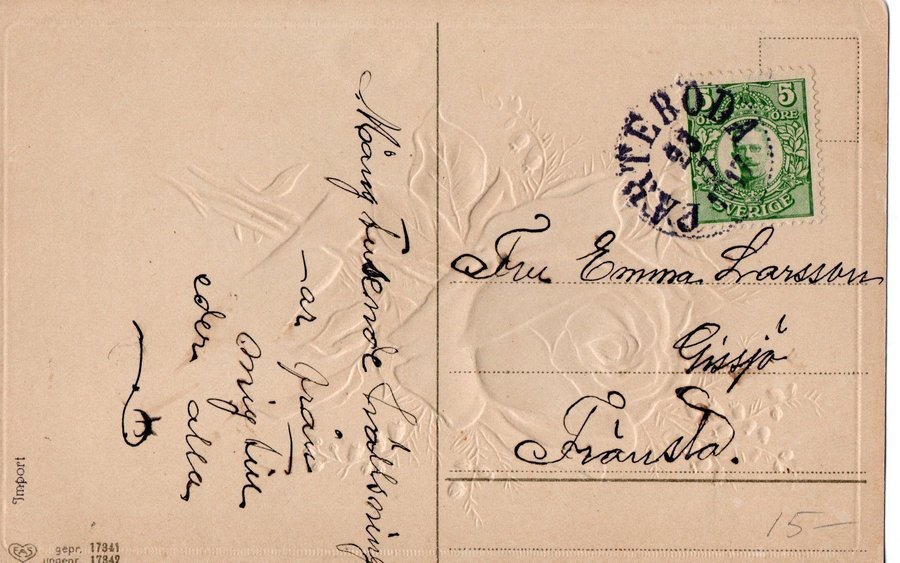 Mång tusende hälsning
-ar från
mig till
eder alla
Fru Emma Larsson
Gissjö
Fränsta.
5 5
ÖRE
SVERIGE
Import
EAS
gepr. 17341
ungepr. 17342
15-